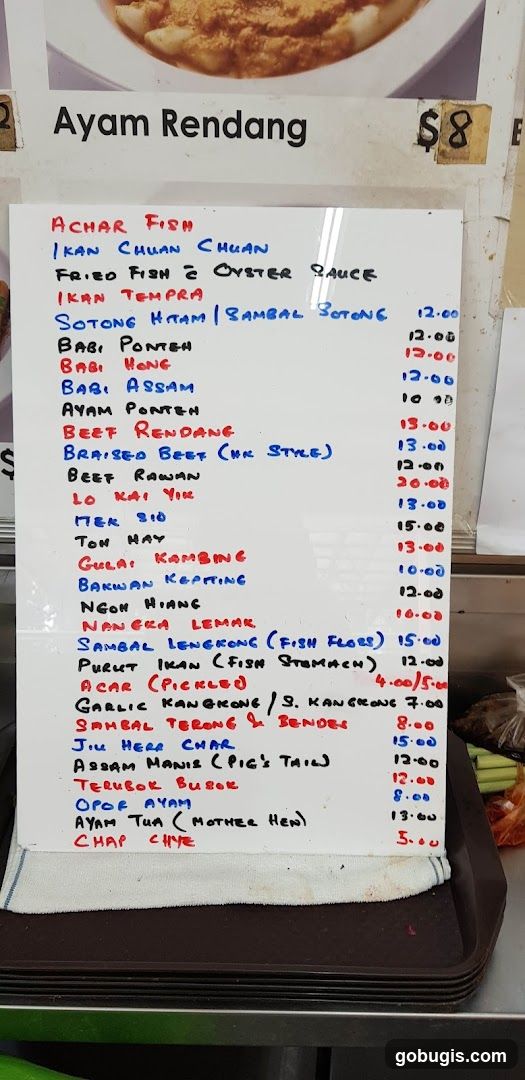 Ayam Rendang $8
ACHAR FISH
IKAN CHUAN CHUAN
FRIED FISH C OYSTER SAUCE
IKAN TEMPRA
SOTONG HITAM / SAMBAL SOTONG 12.00
BABI PONTEH 12.00
BABI HONG 12.00
BABI ASSAM 12.00
AYAM PONTEH 10.00
BEEF RENDANG 13.00
BRAISED BEEF (HK STYLE) 13.00
BEEF RAWAN 12.00
LO KAI YIK 20.00
HEK SIO 13.00
TOH HAY 15.00
GULAI KAMBING 13.00
BAKWAN KEPITING 10.00
NGOH HIANG 12.00
NANGKA LEMAK 10.00
SAMBAL LENGKONG (FISH FLOSS) 15.00
PURUT IKAN (FISH STOMACH) 12.00
ACAR (PICKLED) 4.00/5.00
GARLIC KANGKONG / S. KANGKONG 7.00
SAMBAL TERONG & BENDEK 8.00
JIU HERR CHAR 15.00
ASSAM MANIS (PIG'S TAIL) 12.00
TERUBOK BUSOK 12.00
OPOR AYAM 8.00
AYAM TUA (MOTHER HEN) 13.00
CHAP CHYE 5.00
gobugis.com